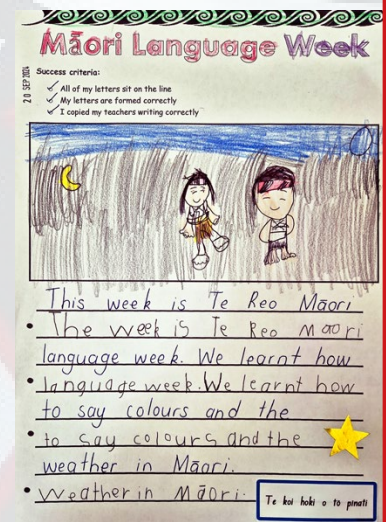 Māori Language Week
20 SEP 2024
Success criteria:
All of my letters sit on the line
My letters are formed correctly
I copied my teachers writing correctly
This week is Te Reo Māori
The week is Te Reo maori
language week. We learnt how
language week. We learnt how
to say colours and the
to say colours and the
weather in Māori.
weather in Māori.
Te koi hoki o to pinati